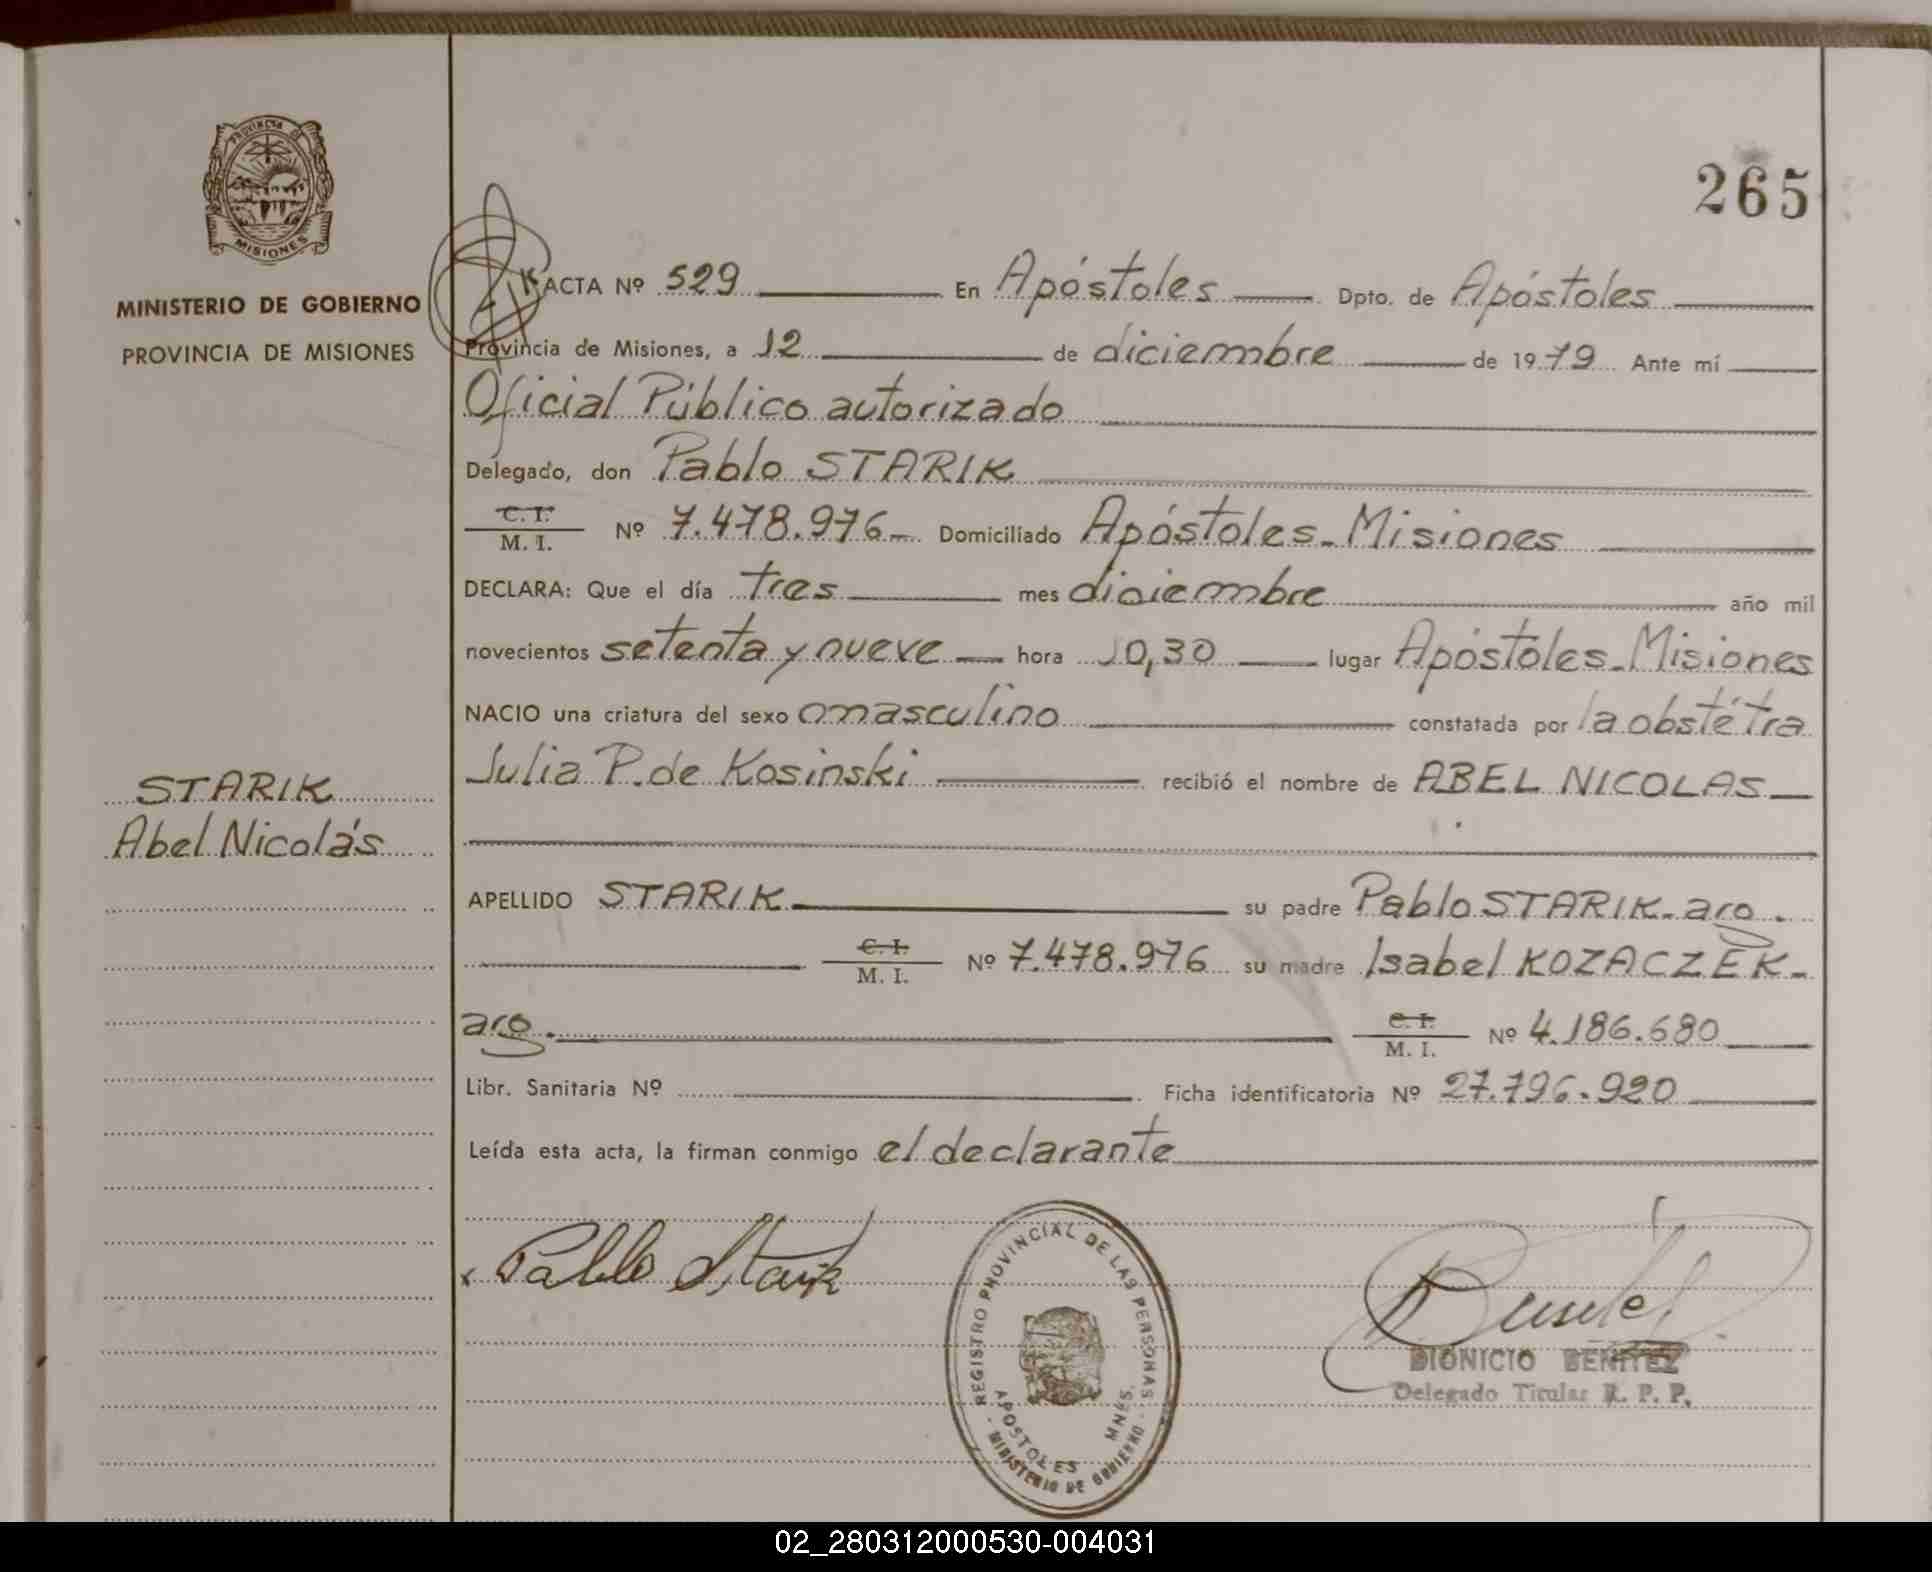 PROVINCIA DE
MISIONES
MINISTERIO DE GOBIERNO
PROVINCIA DE MISIONES
STARIK
Abel Nicolás
265
ACTA Nº 529 En Apóstoles Dpto. de Apóstoles
Provincia de Misiones, a 12 de diciembre de 1979 Ante mí
Oficial Público autorizado
Delegado, don Pablo STARIK
C. I.
M. I. Nº 7.478.976 Domiciliado Apóstoles-Misiones
DECLARA: Que el día tres mes diciembre año mil
novecientos setenta y nueve hora 10,30 lugar Apóstoles-Misiones
NACIO una criatura del sexo masculino constatada por la obstétra
Julia P. de Kosinski recibió el nombre de ABEL NICOLAS
APELLIDO STARIK su padre Pablo STARIK-arg.
C. I.
M. I. Nº 7.478.976 su madre Isabel KOZACZEK-
arg. C. I.
M. I. Nº 4.186.680
Libr. Sanitaria Nº Ficha identificatoria Nº 27.796.920
Leída esta acta, la firman conmigo el declarante
x Pablo Starik
REGISTRO PROVINCIAL DE LAS PERSONAS
APOSTOLES MNES.
MINISTERIO DE GOBIERNO
DIONICIO BENITEZ
Delegado Titular R. P. P.
02_280312000530-004031